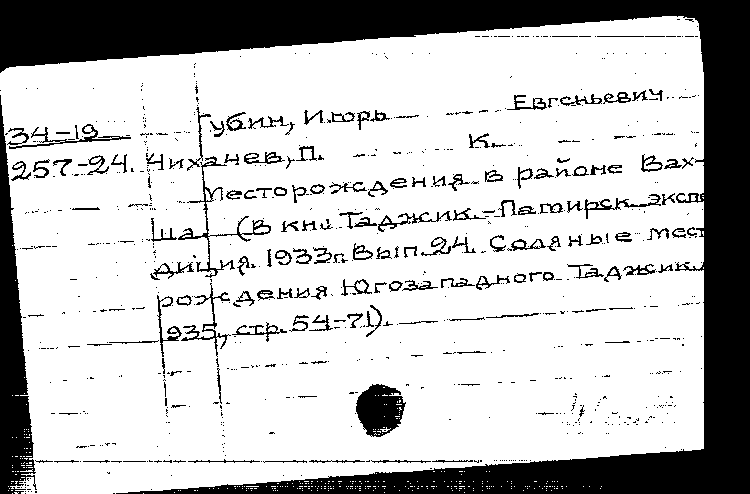 34-19 Губин, Игорь Евгеньевич
257-24. Чиханев, П. К.
Месторождения в районе Вах-
ша. (В кн. Таджик.-Памирск. экспе
диция. 1933г. Вып. 24. Соляные мест
рождения Югозападного Таджик.
935, стр. 54-71).